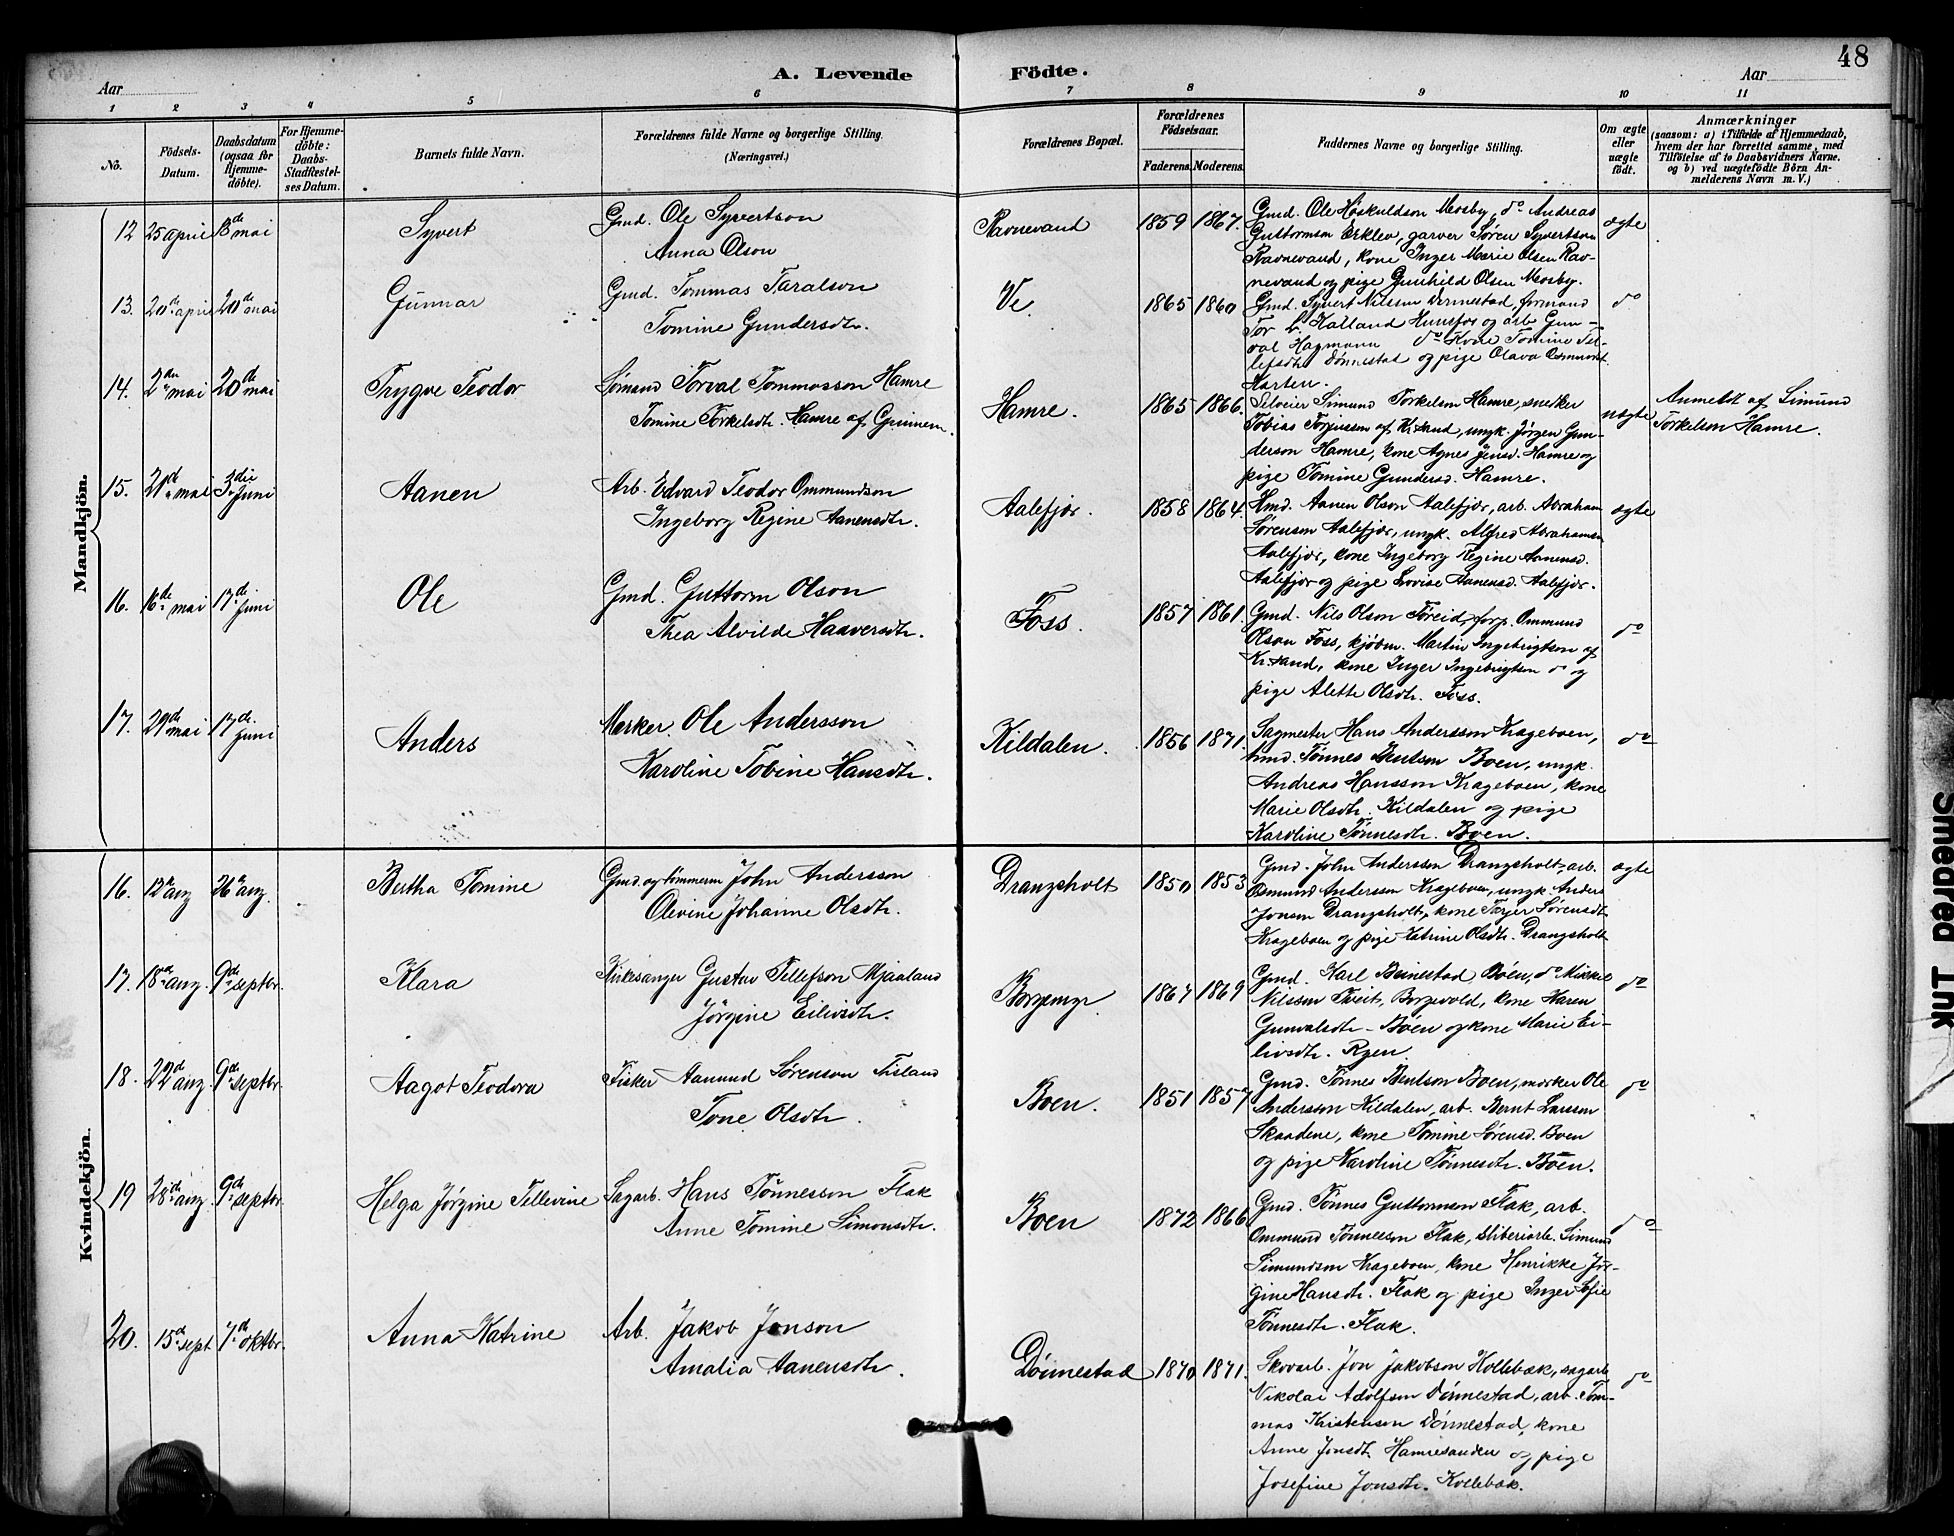 48
A. Levende Födte.
Aar
Aar
1 2 3 4 5 6 7 8 9 10 11
No.
Födsels-Datum.
Daabsdatum (ogsaa för Hjemme-döbte).
For Hjemme-döbte: Daabs-Stadfæstel-ses Datum.
Barnets fulde Navn.
Forældrenes fulde Navne og borgerlige Stilling.
(Næringsvei.)
Forældrenes Bopæl.
Forældrenes Födselsaar.
Faderens. Moderens.
Faddernes Navne og borgerlige Stilling.
Om ægte eller uægte födt.
Anmærkninger
(saasom: a) i Tilfælde af Hjemmedaab,
hvem der har forrettet samme, med
Tilföielse af to Daabsvidners Navne.
og b) ved uægtefödte Börn An-
melderens Navn m. V.)
Mandkjön.
12 25 april 13de mai Syvert Gmd. Ole Syvertson
Anna Olson
Ravnevand 1859 1867.
Gmd. Ole Høskuldson Mosby, do Andreas
Guttormsen Erklev, garver Søren Syvertson
Ravnevand, kone Inger Marie Olsen Rav-
nevand og pige Gunhild Olsen Mosby.
ægte
13. 20de april 20de mai Gunnar Gmd. Tommas Taralson
Tomine Gundersdtr.
Ve. 1865 1860
Gmd. Syvert Nilssen Dønnestad, formand
Tor L. Halland Hunsfos og arb. Gun-
val Hagmann do Kone Tomine Tel-
lefsdtr Dønnestad og pige Olava
Karten.
do
14. 2den mai 20de mai Trygve Teodor Sømand Torval Tommasson Hamre
Tomine Torkelsdtr. Hamre af
Hamre. 1865 1866.
Simund Torkelson Hamre, snedker
Tobias Torjussen af Kr.sand, ungk. Jørgen Gun-
derson Hamre, kone Agnes Jensd. Hamre og
pige Tomine Gundersd. Hamre.
uægte
Anmeldt af Simund
Torkelson Hamre.
15. 21de mai 3die juni Aanen Arb. Edvard Teodor Ommundson
Ingeborg Regine Aanensdtr.
Aalefjær. 1858 1864.
Hmd. Aanen Olson Aalefjær, arb. Abraham
Sørensen Aalefjær, ungk. Alfred Abrahamsen
Aalefjær, kone Ingeborg Regine Aanensd.
Aalefjær og pige Lovise Aanensd. Aalefjær.
ægte
16. 16de mai 17de juni Ole Gmd. Guttorm Olson
Thea Alvilde Haaversdtr.
Foss. 1857 1861.
Gmd. Nils Olson Føreid, forp. Ommund
Olson Foss, kjøbm. Martin Ingebrigtsen af
Kr.sand, kone Inger Ingebrigtsen do og
pige Alette Olsdtr. Foss.
do
17. 29de mai 17de juni Anders Mærker Ole Andersson
Karoline Tobine Hansdtr.
Kildalen. 1856 1871.
Sagmester Hans Andersson Krageboen,
hmd. Tønnes Bentsen Boen, ungk.
Andreas Hansson Krageboen, kone
Marie Olsdtr. Kildalen og pige
Karoline Tønnesdtr. Boen.
do
Kvindekjön.
16. 12te aug 26de aug. Bertha Tomine Gmd. og tømmerm John Andersson
Olevine Johanne Olsdtr.
Drangsholt 1850 1853
Gmd. John Andersson Drangsholt, arb.
Osmund Andersson Krageboen, ungk. Anders
Jonsen Drangsholt, kone Tarjer Sørensdtr.
Krageboen og pige Katrine Olsdtr. Drangsholt
ægte
17. 18de aug. 9de septbr. Klara Kirkesanger Gustav Tellefson Mjaaland
Jørgine Eilivsdtr.
Borgemyr. 1867 1869
Gmd. Karl Beinestad Boen, do Mikkel
Nilsson Tveit, Borgevold, kone Karen
Gunvalsdtr. Boen og kone Marie Ei-
livsdtr. Ryen.
do
18. 22de aug. 9de septbr. Aagot Teodora Fisker Aanund Sørenson Tisland
Tone Olsdtr.
Boen. 1851 1857
Gmd. Tønnes Bentson Boen, mærker Ole
Andersson Kildalen, arb. Bernt Larsson
Skaadene, kone Tomine Sørensd. Boen
og pige Karoline Tønnesdtr. Boen.
do
19 28de aug. 9de septbr. Helga Jørgine Tellevine Sagarb. Hans Tønnesson Flak
Anne Tomine Simonsdtr.
Boen 1872 1866
Gmd. Tønnes Guttormsen Flak, arb.
Ommund Tønnesson Flak, sliberiarb. Simund
Simundson Krageboen, kone Henrikke Jør-
gine Hansdtr. Flak og pige Inger Sofie
Tønnesdtr. Flak.
do
20. 15de sept 7de oktbr. Anna Katrine Arb. Jakob Jonson
Amalia Aanensdtr.
Dønnestad 1870 1871.
Skovarb. Jon Jakobson Kollebæk, sagarb.
Nikolai Adolfsen Dønnestad, arb. Tom-
mas Kristensen Dønnestad, kone
Anne Jonsdtr. Hamresanden og pige
Josefine Jonsdtr. Kollebæk.
do
Smeared Ink